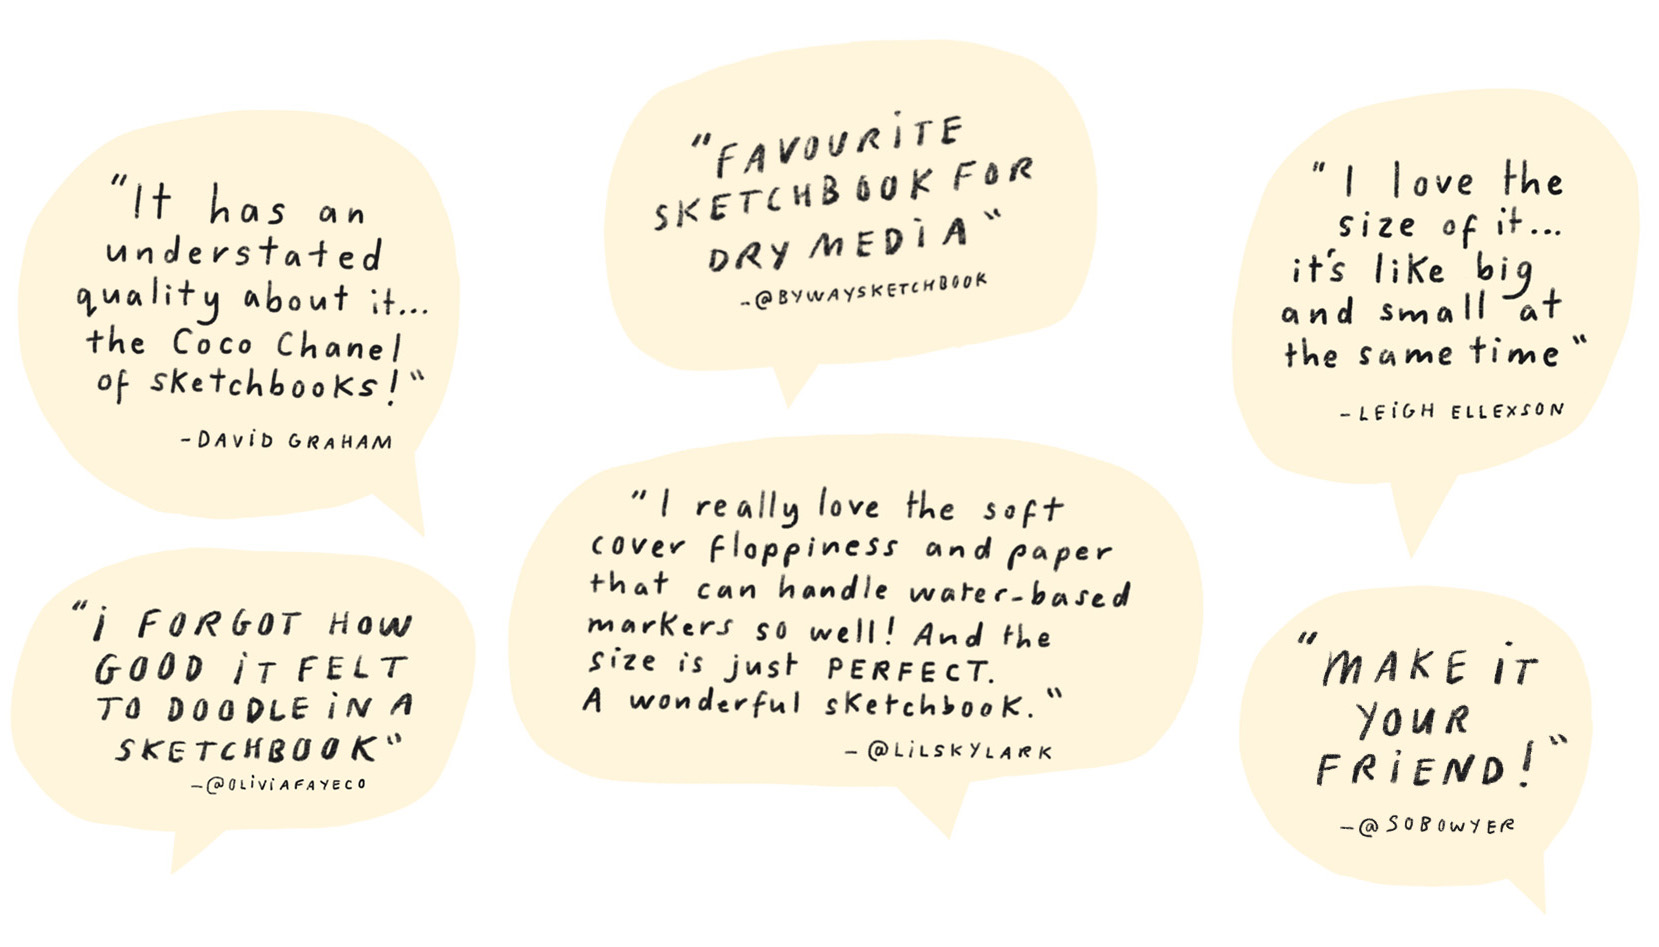 "It has an
understated
quality about it...
the Coco Chanel
of sketchbooks!"
-DAViD GRAHAM
"FAVOURiTE
SKETCHBOOK FOR
DRY MEDiA"
-@BYWAYSKETCHBOOK
"I love the
size of it...
it's like big
and small at
the same time"
-LEiGH ELLEXSON
"i FORGOT HOW
GOOD iT FELT
TO DOODLE iN A
SKETCHBOOK"
-@OLiViAFAYECO
"I really love the soft
cover floppiness and paper
that can handle water-based
markers so well! And the
size is just PERFECT.
A wonderful sketchbook."
-@LiLSKYLARK
"MAKE iT
YOUR
FRiEND!"
-@SOBOWYER